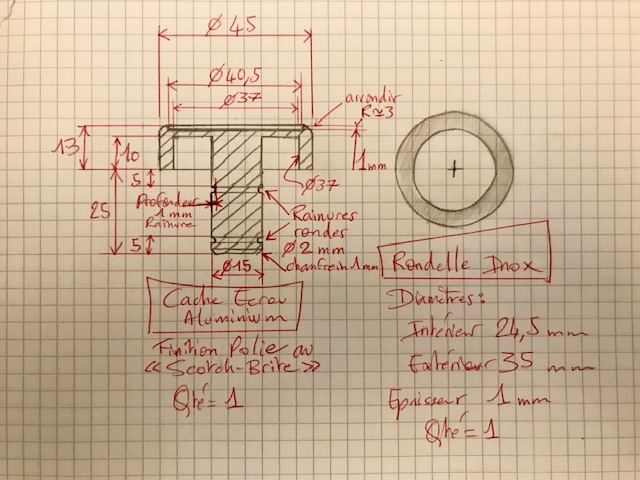 Ø 45
Ø40,5
Ø37
arrondir
R≃3
13
10
1mm
Ø37
5
25
Profondeur
1 mm
Rainure
5
Rainures
rondes
Ø 2 mm
chanfrein 1mm
Ø15
Cache Ecrou
Aluminium
Finition Polie au
« Scotch-Brite »
Qté = 1
Rondelle Inox
Diamètres :
Intérieur 24,5 mm
Extérieur 35 mm
Epaisseur 1 mm
Qté = 1